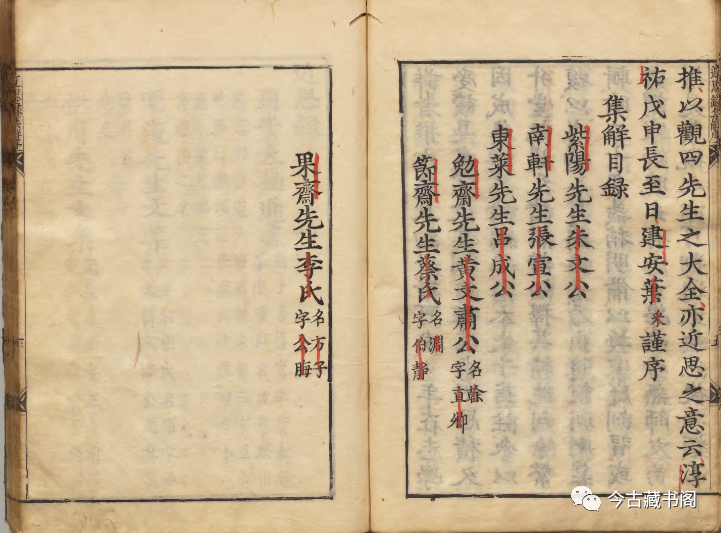 推以觀四先生之大全亦近思之意云淳
祐戊申長至日建安葉采謹序
集解目錄
紫陽先生朱文公
南軒先生張宣公
東萊先生呂成公
勉齋先生黃文肅公名榦字直卿
節齋先生蔡氏名淵字伯静
果齋先生李氏名方子字公晦
今古藏书阁